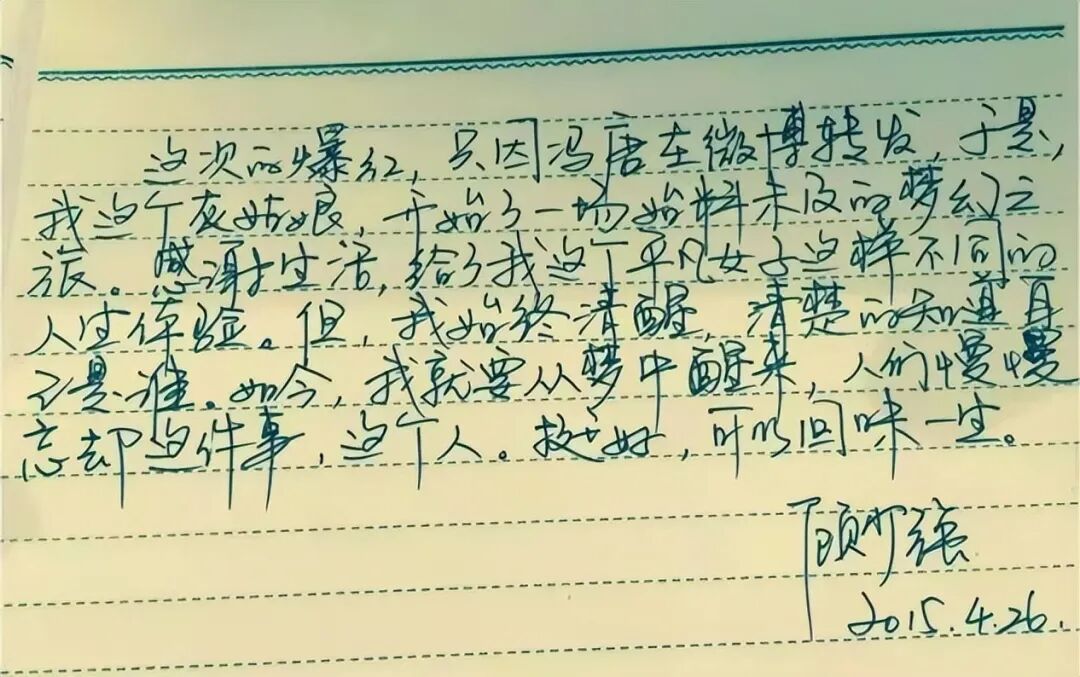 这次的爆红，只因冯唐在微博转发，于是，
我这个灰姑娘，开始了一场始料未及的梦幻之
旅。感谢生活，给了我这个平凡女子这样不同的
人生体验。但，我始终清醒，清楚的知道自
己是谁。如今，我就要从梦中醒来，人们慢慢
忘却这件事，这个人。挺好，可以回味一生。
顾少强
2015.4.26.